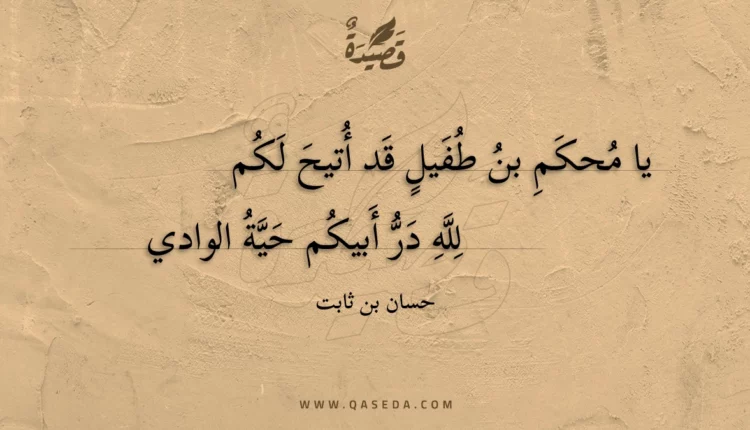 قَصِيدَةٌ
يا مُحكَمِ بنُ طُفَيلٍ قَد أُتيحَ لَكُم
لِلَّهِ دَرُّ أَبيكُم حَيَّةُ الوادي
حسان بن ثابت
WWW.QASEDA.COM